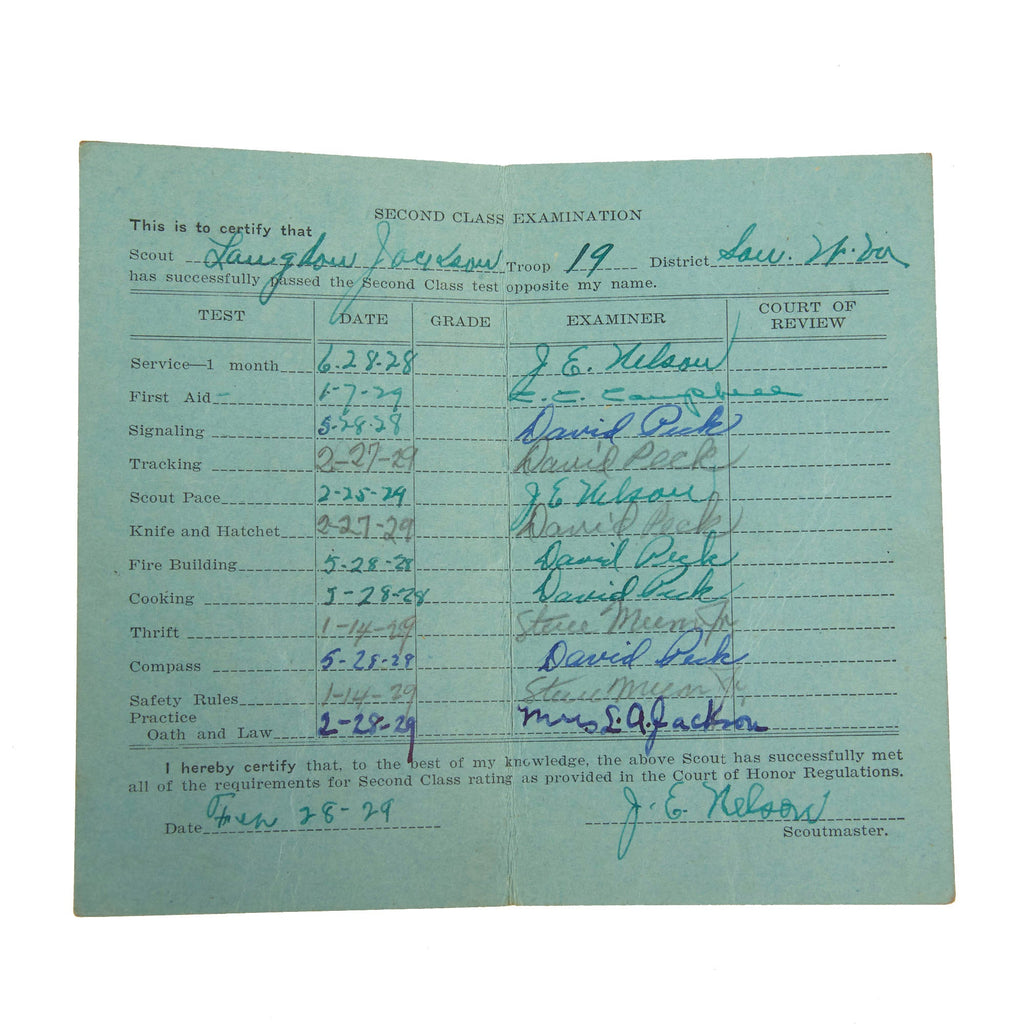 SECOND CLASS EXAMINATION
This is to certify that
Scout Langdon Jackson Troop 19 District
has successfully passed the Second Class test opposite my name.
TEST DATE GRADE EXAMINER COURT OF REVIEW
Service—1 month 6-28-28 J. E. Nelson
First Aid- 1-7-29 E. E. Campbell
Signaling 5-28-28 David Peck
Tracking 2-27-29 David Peck
Scout Pace 2-25-29 J E Nelson
Knife and Hatchet 2-27-29 David Peck
Fire Building 5-28-28 David Peck
Cooking 5-28-28 David Peck
Thrift 1-14-29 Jr
Compass 5-28-28 David Peck
Safety Rules 1-14-29 Jr.
Practice
Oath and Law 2-28-29 Mrs L. A. Jackson
I hereby certify that, to the best of my knowledge, the above Scout has successfully met
all of the requirements for Second Class rating as provided in the Court of Honor Regulations.
Date 28-29 J. E. Nelson
Scoutmaster.